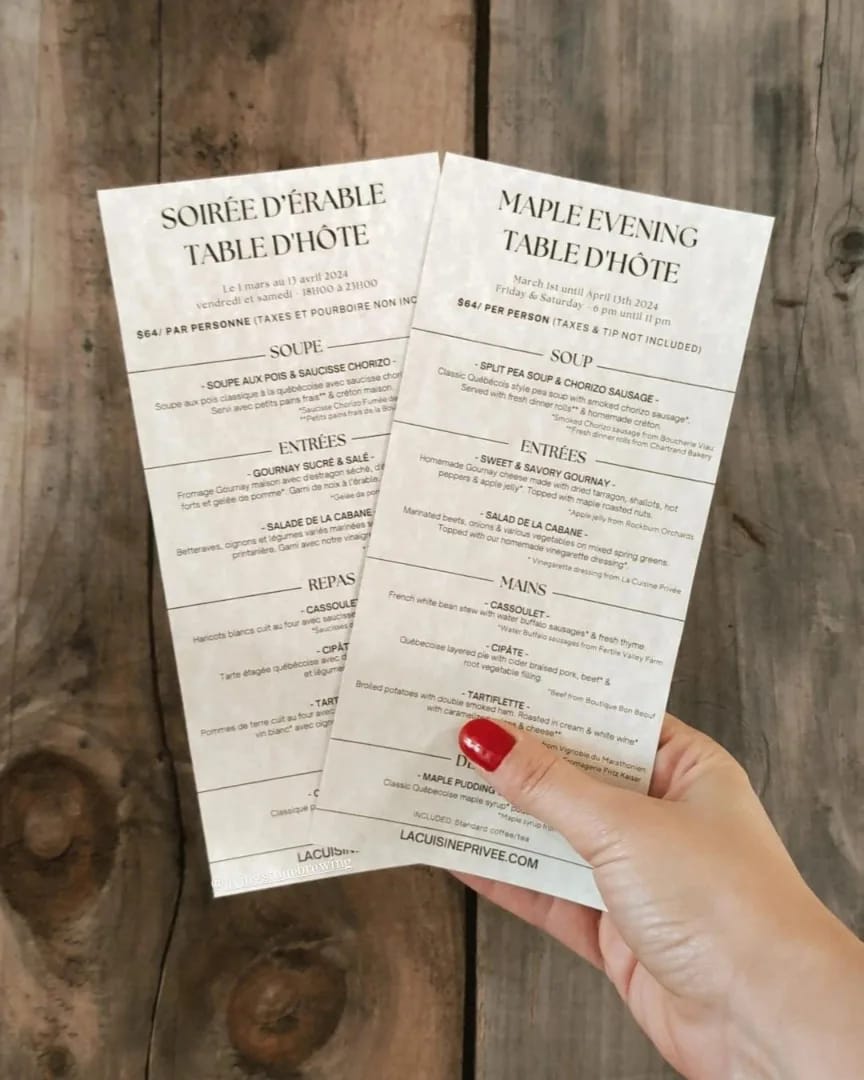 SOIRÉE D'ÉRABLE
TABLE D'HÔTE
Le 1 mars au 13 avril 2024
vendredi et samedi - 18H00 à 23H00
$64/ PAR PERSONNE (TAXES ET POURBOIRE NON INC
SOUPE
- SOUPE AUX POIS & SAUCISSE CHORIZO -
Soupe aux pois classique à la québécoise avec saucisse chori
Servi avec petits pains frais** & créton maison.
*Saucisse Chorizo Fumée de
**Petits pains frais de la Bou
ENTRÉES
- GOURNAY SUCRÉ & SALÉ -
Fromage Gournay maison avec d'estragon séché, d'é
forts et gelée de pomme*. Garni de noix à l'érable.
*Gelée de pom
- SALADE DE LA CABANE
Betteraves, oignons et légumes variés marinées s
printanière. Garni avec notre vinaigr
REPAS
- CASSOULET
Haricots blancs cuit au four avec saucisse
*Saucisses
- CIPÂT
Tarte étagée québécoise avec
et légume
- TART
Pommes de terre cuit au four avec
vin blanc* avec oign
Classique p
LACUISIN
MAPLE EVENING
TABLE D'HÔTE
March 1st until April 13th 2024
Friday & Saturday - 6 pm until 11 pm
$64/ PER PERSON (TAXES & TIP NOT INCLUDED)
SOUP
- SPLIT PEA SOUP & CHORIZO SAUSAGE -
Classic Québécois style pea soup with smoked chorizo sausage*.
Served with fresh dinner rolls** & homemade créton.
*Smoked Chorizo sausage from Boucherie Viau
**Fresh dinner rolls from Chartrand Bakery
ENTRÉES
- SWEET & SAVORY GOURNAY -
Homemade Gournay cheese made with dried tarragon, shallots, hot
peppers & apple jelly*. Topped with maple roasted nuts.
*Apple jelly from Rockburn Orchards
- SALAD DE LA CABANE -
Marinated beets, onions & various vegetables on mixed spring greens.
Topped with our homemade vinegarette dressing*.
* Vinegarette dressing from La Cuisine Privée
MAINS
- CASSOULET -
French white bean stew with water buffalo sausages* & fresh thyme.
*Water Buffalo sausages from Fertile Valley Farm
- CIPÂTE -
Québecoise layered pie with cider braised pork, beef* &
root vegetable filling.
*Beef from Boutique Bon Beouf
- TARTIFLETTE -
Broiled potatoes with double smoked ham. Roasted in cream & white wine*
with caramelized & cheese**
from Vignoble du Marathonien
Fromagerie Fritz Kaiser
DE
- MAPLE PUDDING
Classic Québecoise maple syrup*
*Maple syrup fro
INCLUDED: Standard coffee/tea
LACUISINEPRIVEE.COM